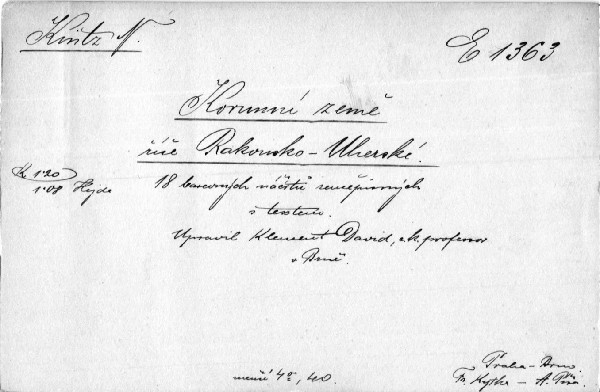 Küitz N.
E 1363
Korunní země
říše Rakousko-Uherské.
K 1·20
1·08 Hejda
18 barevných náčrtů zeměpisných
s textem.
Upravil Klement David, c.k. professor
v Brně.
menší 4°, 40.
Praha - Brno.
Fr. Kytka - A. Píša